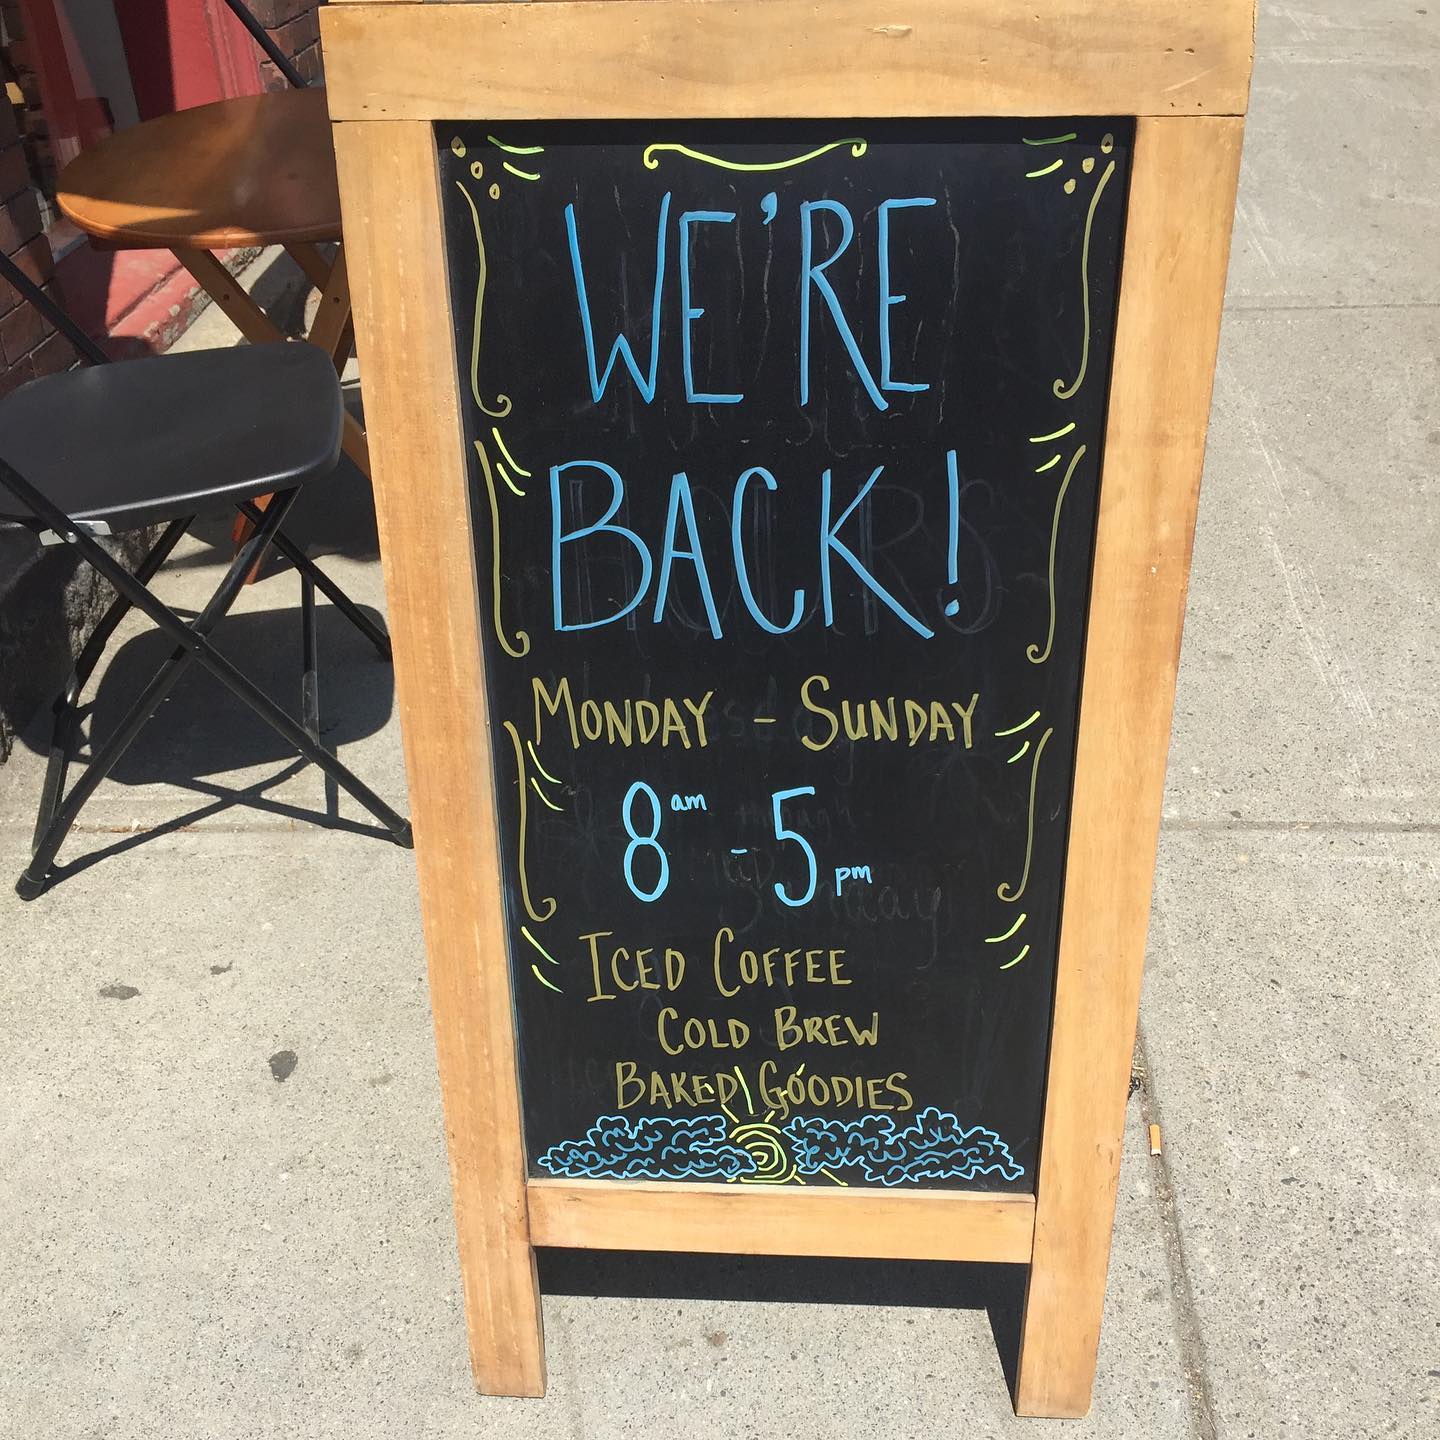 WE'RE
BACK!
MONDAY - SUNDAY
8am - 5pm
ICED COFFEE
COLD BREW
BAKED GOODIES